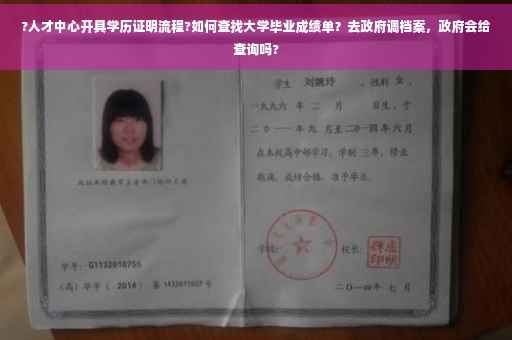 ?人才中心开具学历证明流程?如何查找大学毕业成绩单？去政府调档案，政府会给
查询吗?
学生 刘婉玲 ，性别 女 ，
一九九六 年 二 月 日生，于
二〇一一年九 月至二〇一四年六月
在本校高中部学习，学制 三年，修业
期满，成绩合格，准予毕业。
学校： 校长：
学号： G1132010755
（高）毕字（ 2014 ）第 1432011027 号
二〇一四年 七 月